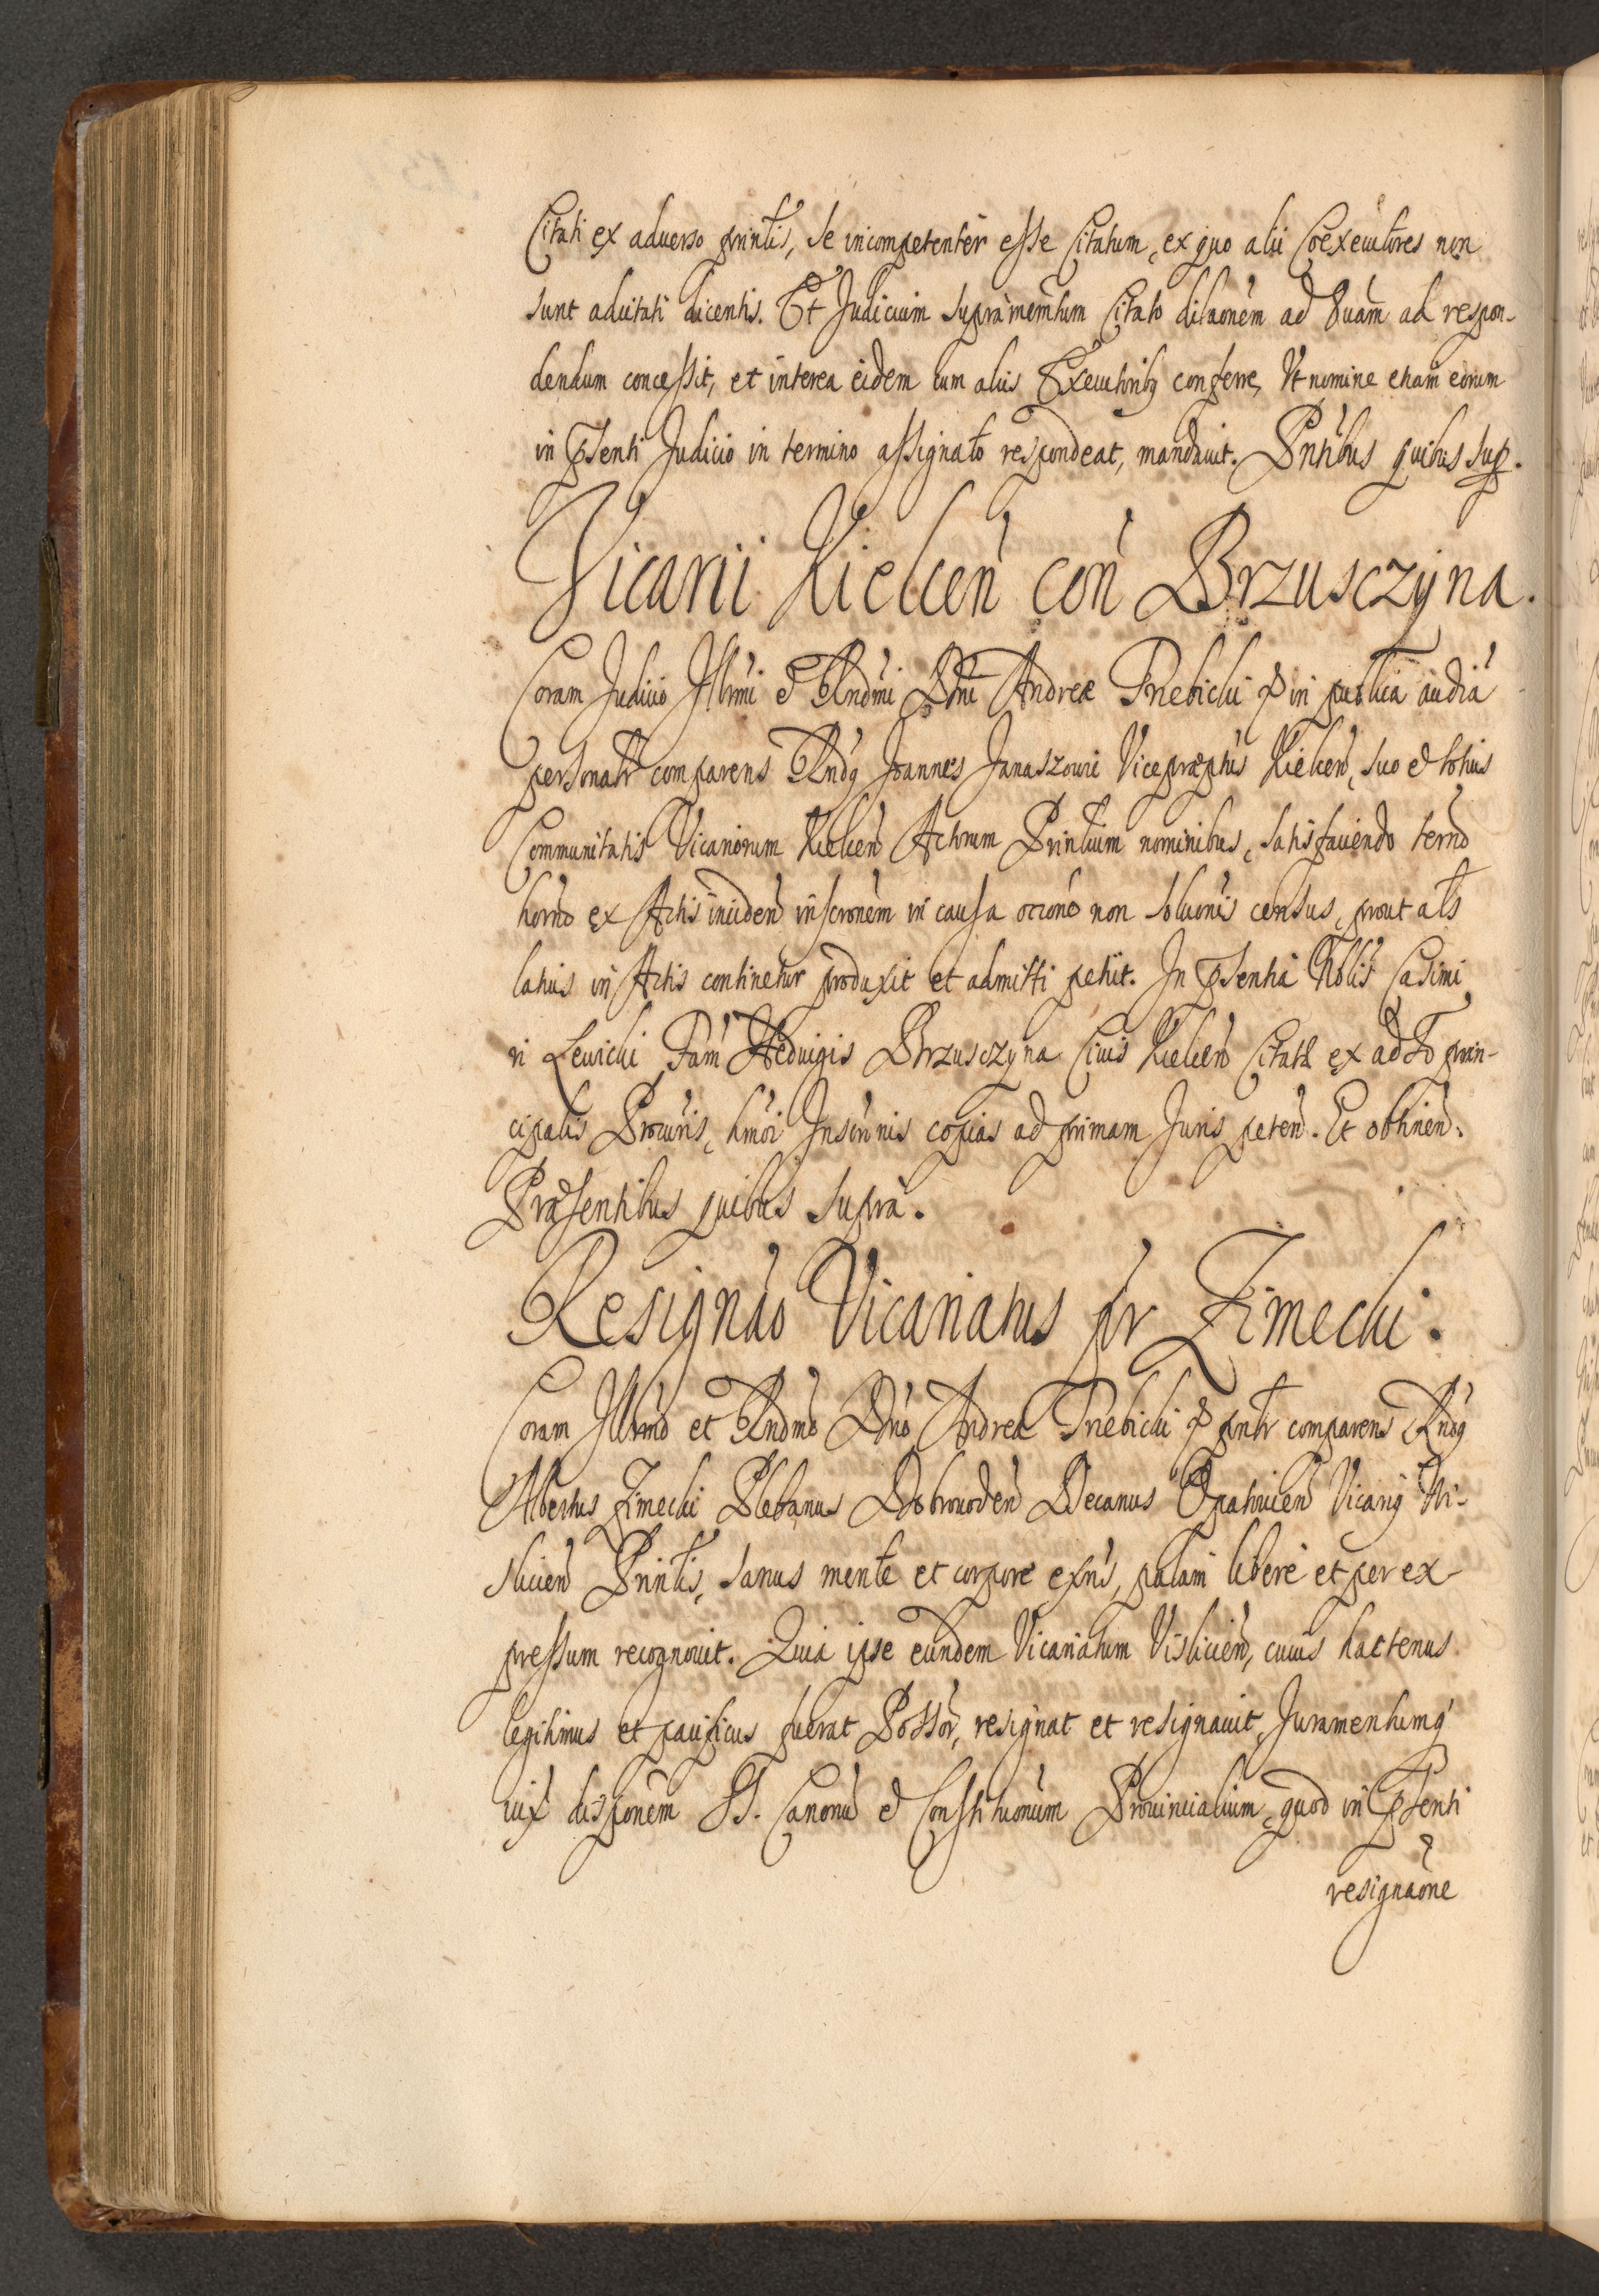 Citati ex aduerso prinłis, se incompetentèr esse Citatum, ex quo alii Coexecutores non
sunt adcitati dicentis. Et Judicium supramemtum Citato dilaonèm ad 8uam ad respon-
dendum concessit, et interea eidem cum aliis Executoribq conferre, Vt nomine etiam eorum
in Psenti Judicio in termino assignato respondeat, mandauit. Pntibus quibus sup.
Vicarii Kielcen con Brzusczyna.
Coram Judicio Illrmi et Rndmi Dni Andreæ Trzebicki & in publica audia
personalr comparens Rndq Joannes Janaszowic Vicepræptus Kielcen, suo et totius
Communitatis Vicariorum Kielcen Actorum Prinlium nominibus, satisfaciendo termo
horno ex Actis inciden inscronèm in causa ocione non soluonis census, prout als
latius in Actis continetur produxit et admitti petiit. In Psentia Nobis Casimi
ri Lewicki Fam Hedvigis Brzusczyna Ciuis Kielcen Citatæ ex aduo prin-
cipalis Procuris, hmoi Inscinnis copias ad primam Juris peten. Et obtinen.
Præsentibus quibus supra.
Resignao Vicariatus pr Zimecki.
Coram Illrmo et Rndmo Dno Andrea Trzebicki & pntr comparens Rndq
Albertus Zimecki Plebanus Dobrowoden Decanus Opatouien Vicarq Wi-
slicien Prinlis, sanus mente et corpore exns, palam libere et per ex-
pressum recognouit. Quia ipse eundem Vicariatum Vislicien, cuius hactenus
legitimus et pacificus fuerat Possor, resignat et resignauit, Juramentumq
iux disponem SS. Canonu et Constituonum Prouincialium, quod in Psenti
resignaone